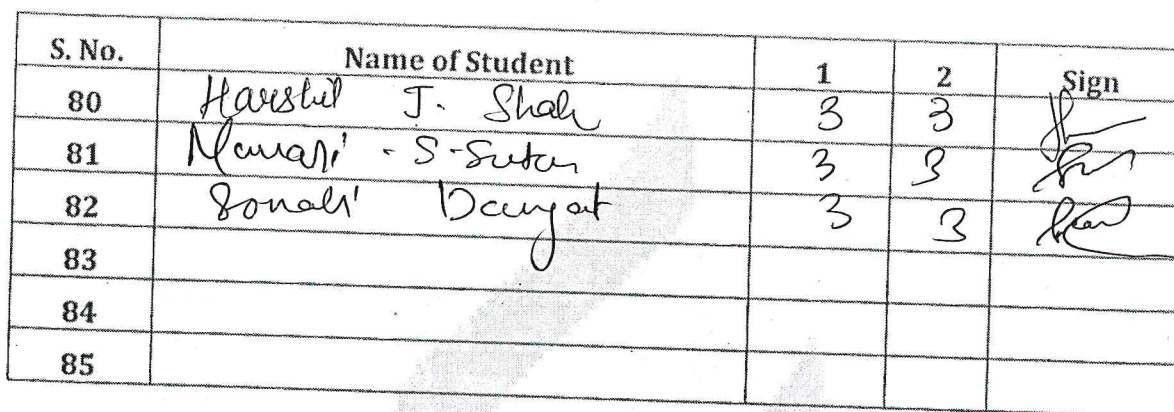 S. No. Name of Student 1 2 Sign
80 Harshil J. Shah 3 3
81 Manasi - S - Sutar 3 3
82 Sonali Dangat 3 3
83
84
85